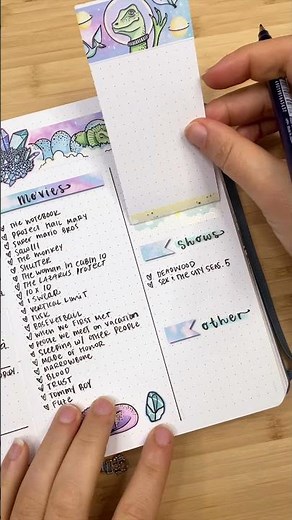 movies
THE NOTEBOOK
PROJECT HAIL MARY
SUPER MARIO BROS
SQUALL
THE MONKEY
SHUTTER
THE WOMAN IN CABIN 10
THE LAZARUS PROJECT
10 X 10
I SWEAR
VERTICAL LIMIT
FUCK
BASEKETBALL
WHEN WE FIRST MET
PEOPLE WE MEET ON VACATION
SLEEPING W/ OTHER PEOPLE
MADE OF HONOR
MARROWBONE
BLOOD
TRUST
TOMMY BOY
shows
DEADWOOD
SEX & THE CITY SEAS. 5
other